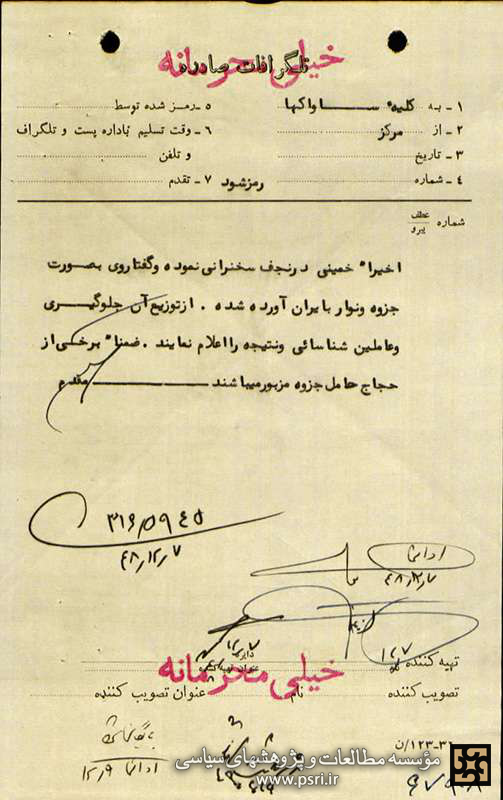 خیلی محرمانه
تلگرافات صادره
۱ - به کلیه ساواکها
۲ - از مرکز
۳ - تاریخ
۴ - شماره رمزشود
۵ - رمز شده توسط
۶ - وقت تسلیم باداره پست و تلگراف
و تلفن
۷ - تقدم
شماره عطف
پیرو
اخیرا" خمینی درنجف سخنرانی نموده وگفتاروی بصورت
جزوه ونوار بایران آورده شده . ازتوزیع آن جلوگیری
وعاملین شناسائی ونتیجه را اعلام نمایند . ضمنا" برخی از
حجاج حامل جزوه مزبورمیباشند ــ مقدم
۳۱۶/۵۹۴۵
۴۸/۱۲/۷
تهیه کننده
تصویب کننده
نام
عنوان تصویب کننده
خیلی محرمانه
مؤسسه مطالعات و پژوهشهای سیاسی
www.psri.ir